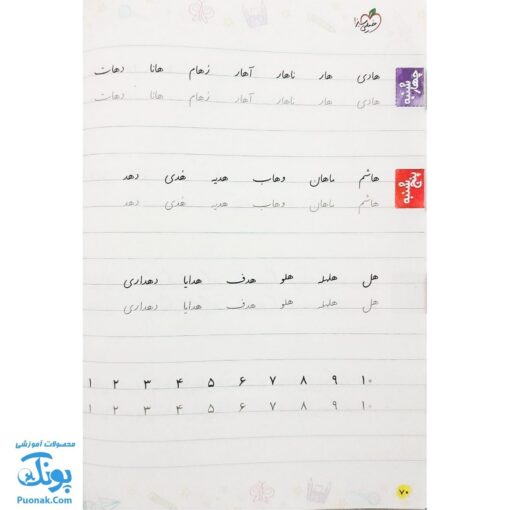 خیلی سبز
چهارشنبه
هادی هار ناهار آهار زهام هانا دهات
هادی هار ناهار آهار زهام هانا دهات
پنج شنبه
هاشم ماهان وهاب هدیه هُدی دهد
هاشم ماهان وهاب هدیه هُدی دهد
هل هلهله هلو هدف هدایا دهداری
هل هلهله هلو هدف هدایا دهداری
۱ ۲ ۳ ۴ ۵ ۶ ۷ ۸ ۹ ۱۰
۱ ۲ ۳ ۴ ۵ ۶ ۷ ۸ ۹ ۱۰
۷۰
محصولات آموزشی
پونک
Puonak.Com